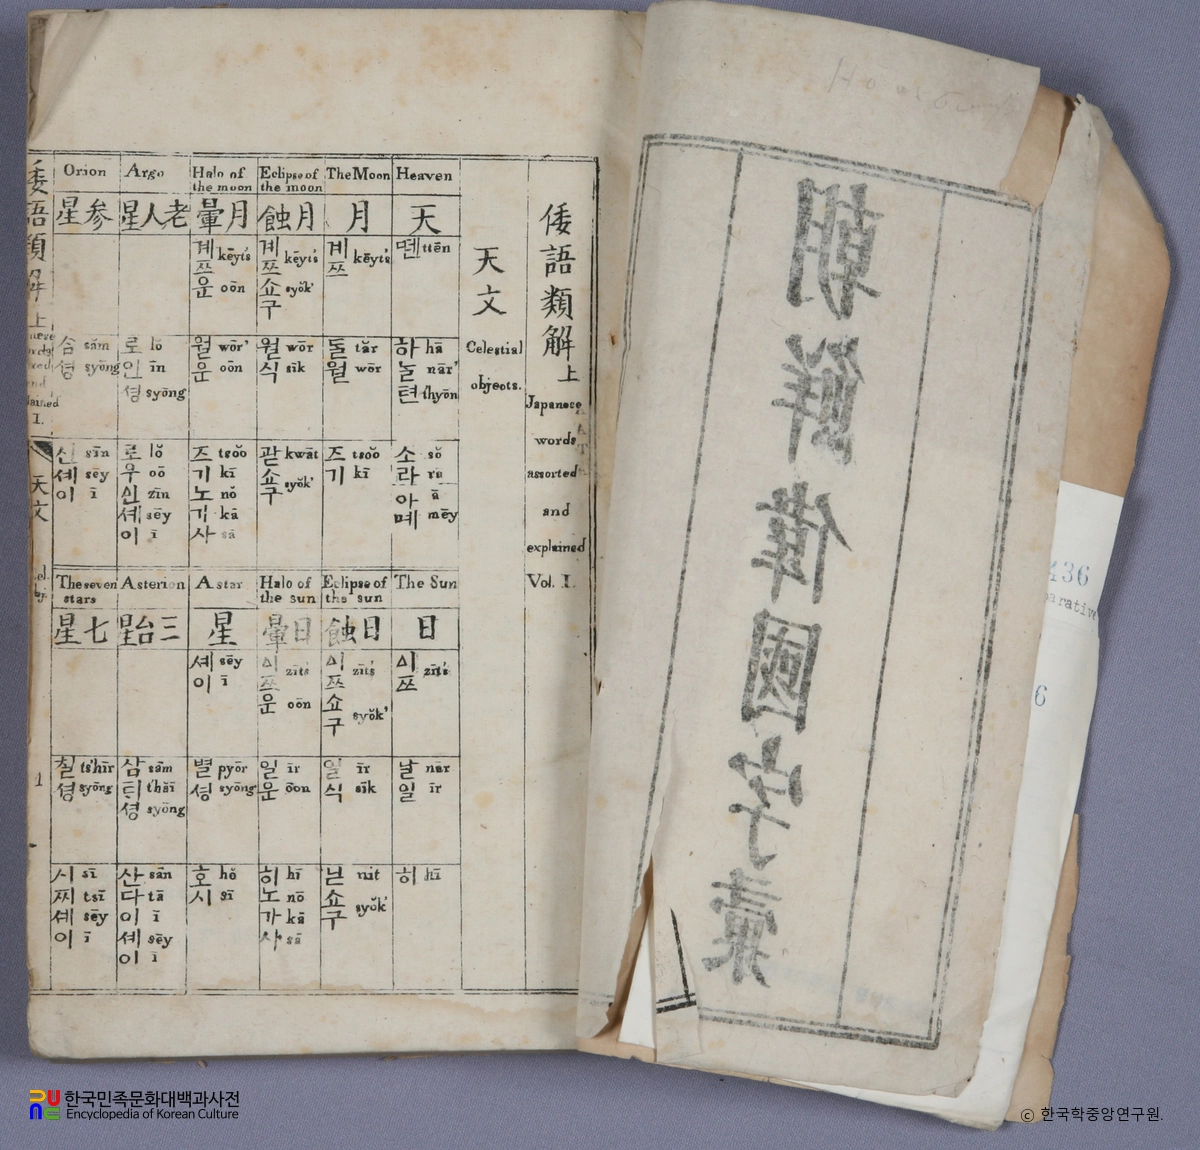 朝鮮偉國字彙
倭語類解上
Japanese
words
assorted
and
explained
Vol. I.
天文
Celestial
objects.
Heaven
天
ttēn
하 hā
놀 nār'
텬 t'hyōn
소 sŏ
라 rā
아 ā
몌 mēy
The Moon
月
계쯔 kēyts'
돌 tăr
월 wōr
즈 tsŏŏ
기 kī
Eclipse of
the moon
月蝕
계쯔 kēyts'
쇼구 syŏk'
월 wōr
식 sīk
콷 kwāt
쇼구 syŏk'
Halo of
the moon
月暈
계쯔 kēyts'
운 oōn
월 wōr'
운 oōn
즈 tsŏŏ
기 kī
노 nŏ
가 kā
사 sā
Argo
老人星
로 lŏ
인 īn
셩 syōng
로 lŏ
우 oō
신 zīn
셰 sēy
이 ī
Orion
参星
슴 săm
셩 syōng
신 sīn
셰 sēy
이 ī
The Sun
日
zīts'
날 năr
일 īr
히 hī
Eclipse of
the sun
日蝕
zīts'
쇼구 syŏk'
일 īr
식 sīk
닏 nit
쇼구 syŏk'
Halo of
the sun
日暈
zīts'
운 oōn
일 īr
운 ōon
히 hī
노 nō
가 kā
사 sā
A star
星
셰 sēy
이 ī
별 pyōr
셩 syōng
호 hŏ
시 sī
Asterion
三台星
삼 săm
틱 t'hāī
셩 syōng
산 sān
다 tā
이 ī
셰 sēy
이 ī
The seven
stars
七星
칠 ts'hīr
셩 syōng
시 sī
찌 tsī
셰 sēy
이 ī
倭語類解上
I.
天文
1
436
parative
6
한국민족문화대백과사전
Encyclopedia of Korean Culture
© 한국학중앙연구원.